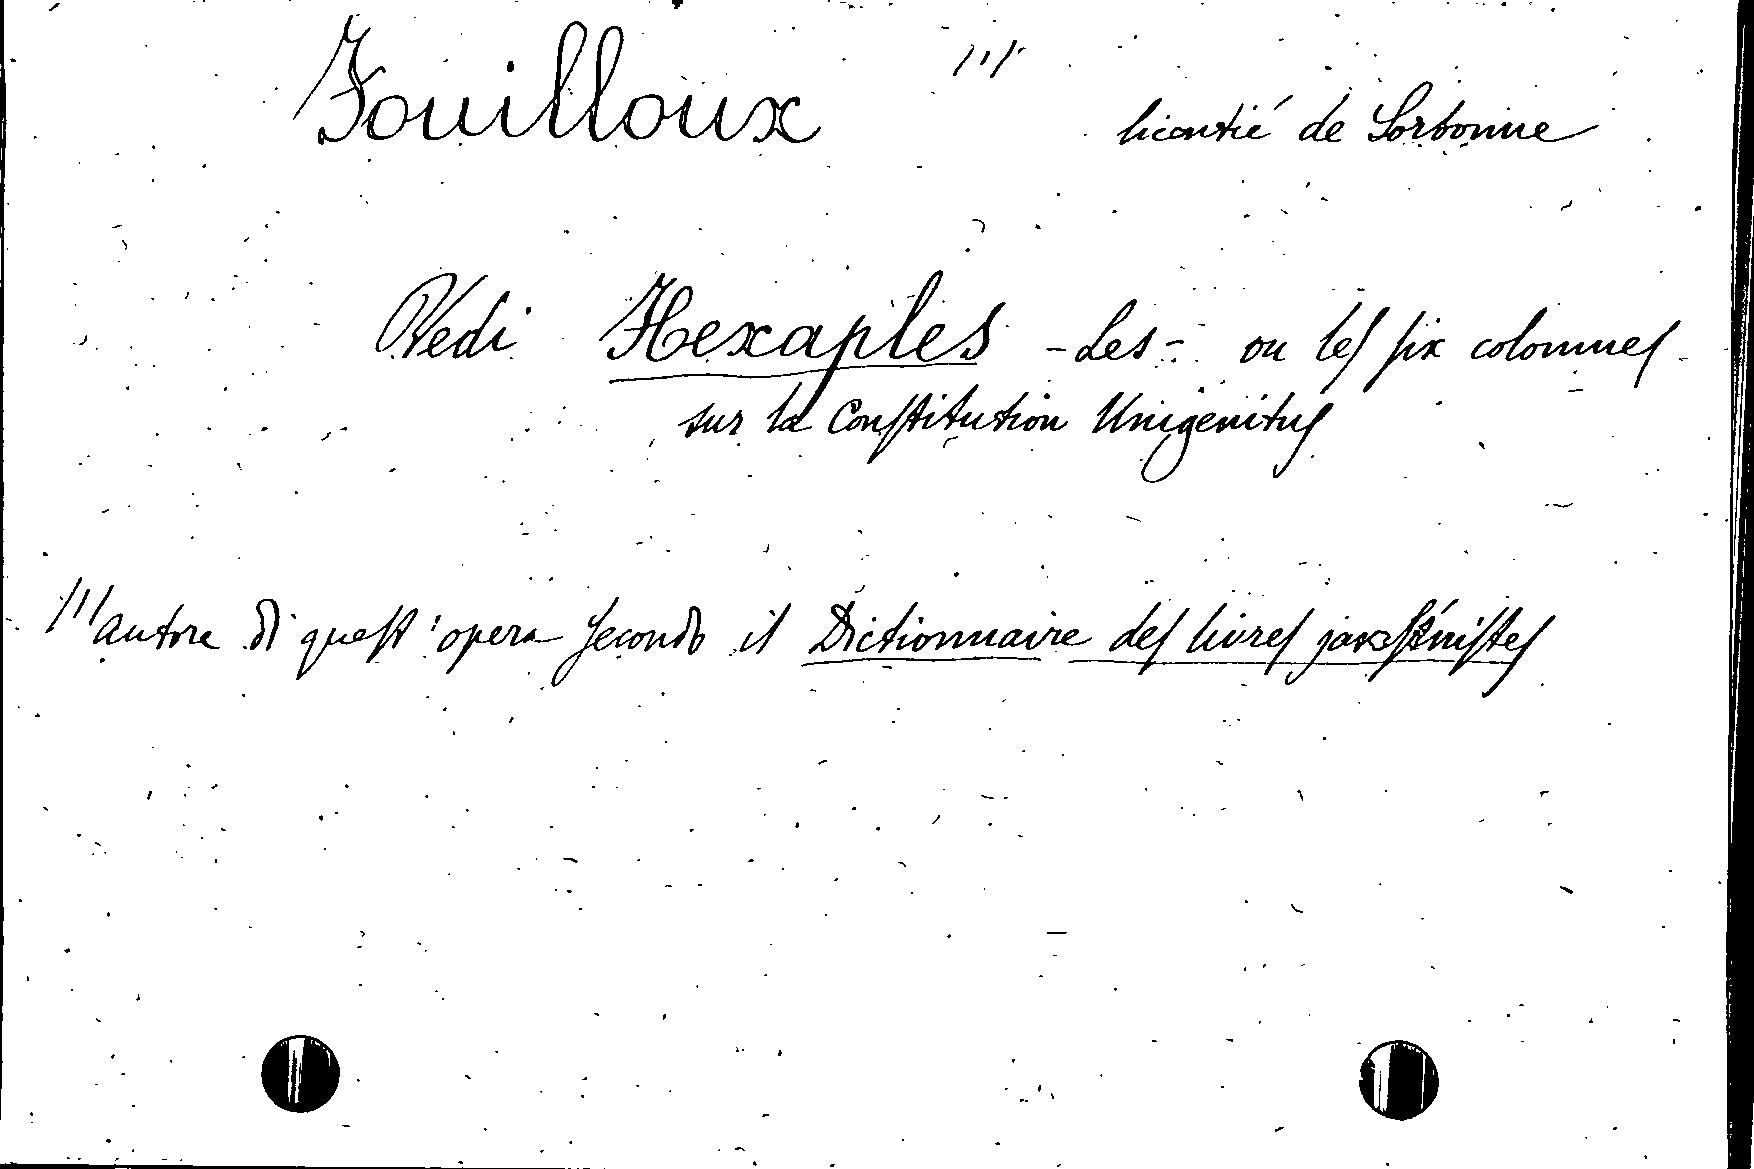 Fouilloux /1/ licentié de Sorbonne
Vedi Hexaples - Les - ou les six colonnes
sur la Constitution Unigenitus
/1/ autore di quest'opera secondo il Dictionnaire des livres jansénistes